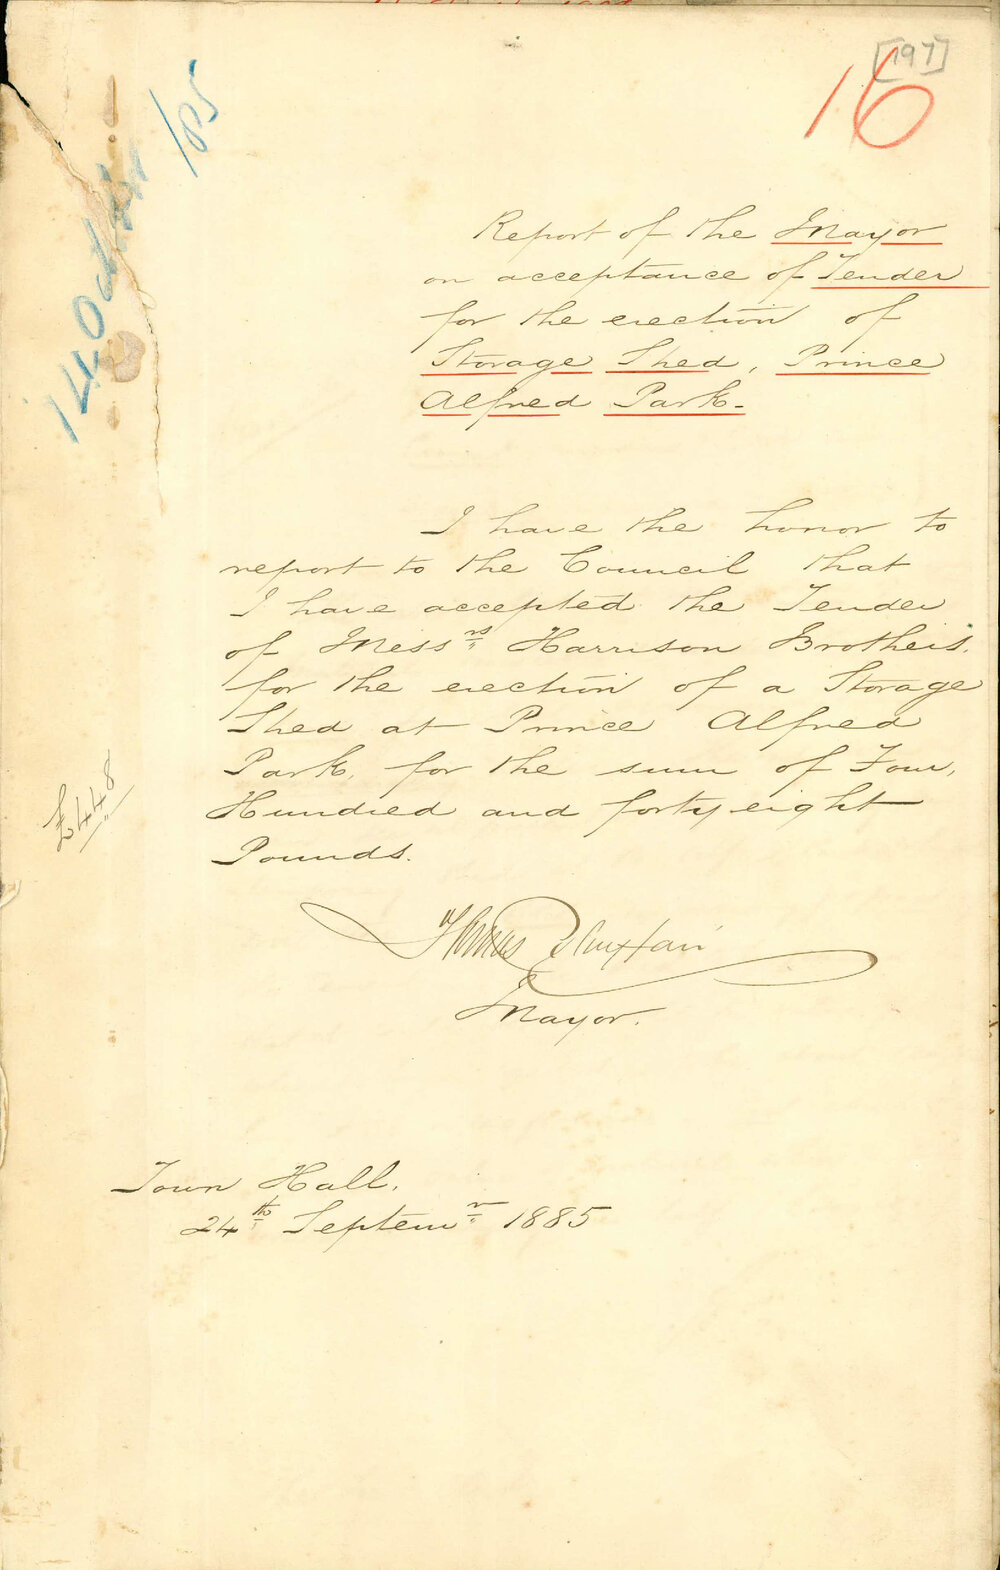 [197]
16
14 Octber /85
Report of the Mayor
on acceptance of Tender
for the erection of
Storage Shed, Prince
Alfred Park.
I have the honor to
report to the Council that
I have accepted the Tender
of Messrs Harrison Brothers.
for the erection of a Storage
Shed at Prince Alfred
Park, for the sum of Four,
Hundred and forty eight
Pounds.
£448
Thomas Playfair
Mayor.
Town Hall.
24th Septemr 1885